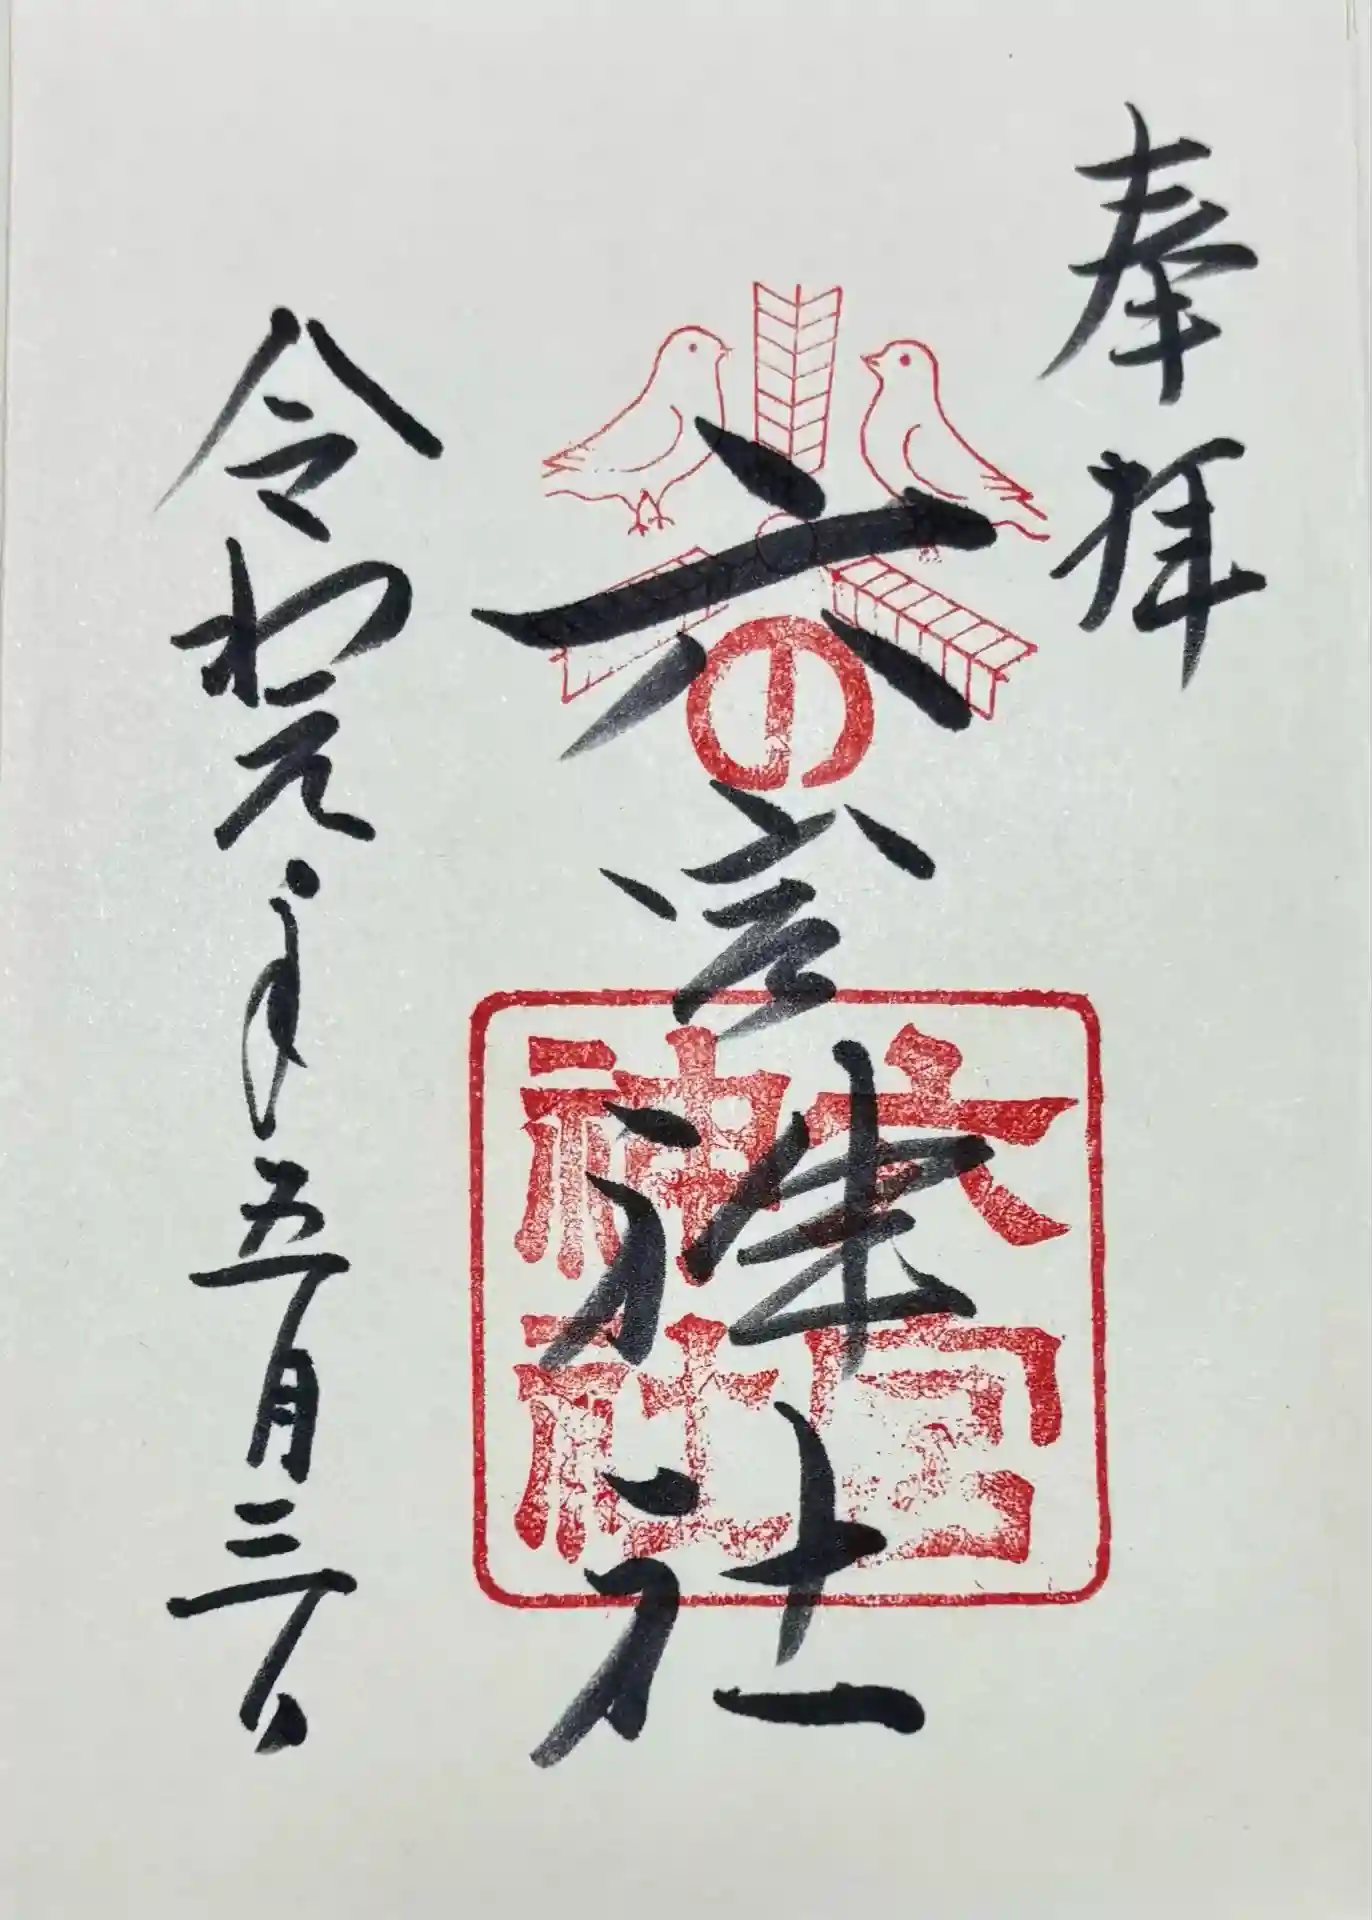 奉拝
六の宮神社
六宮神社
令和元年五月三日